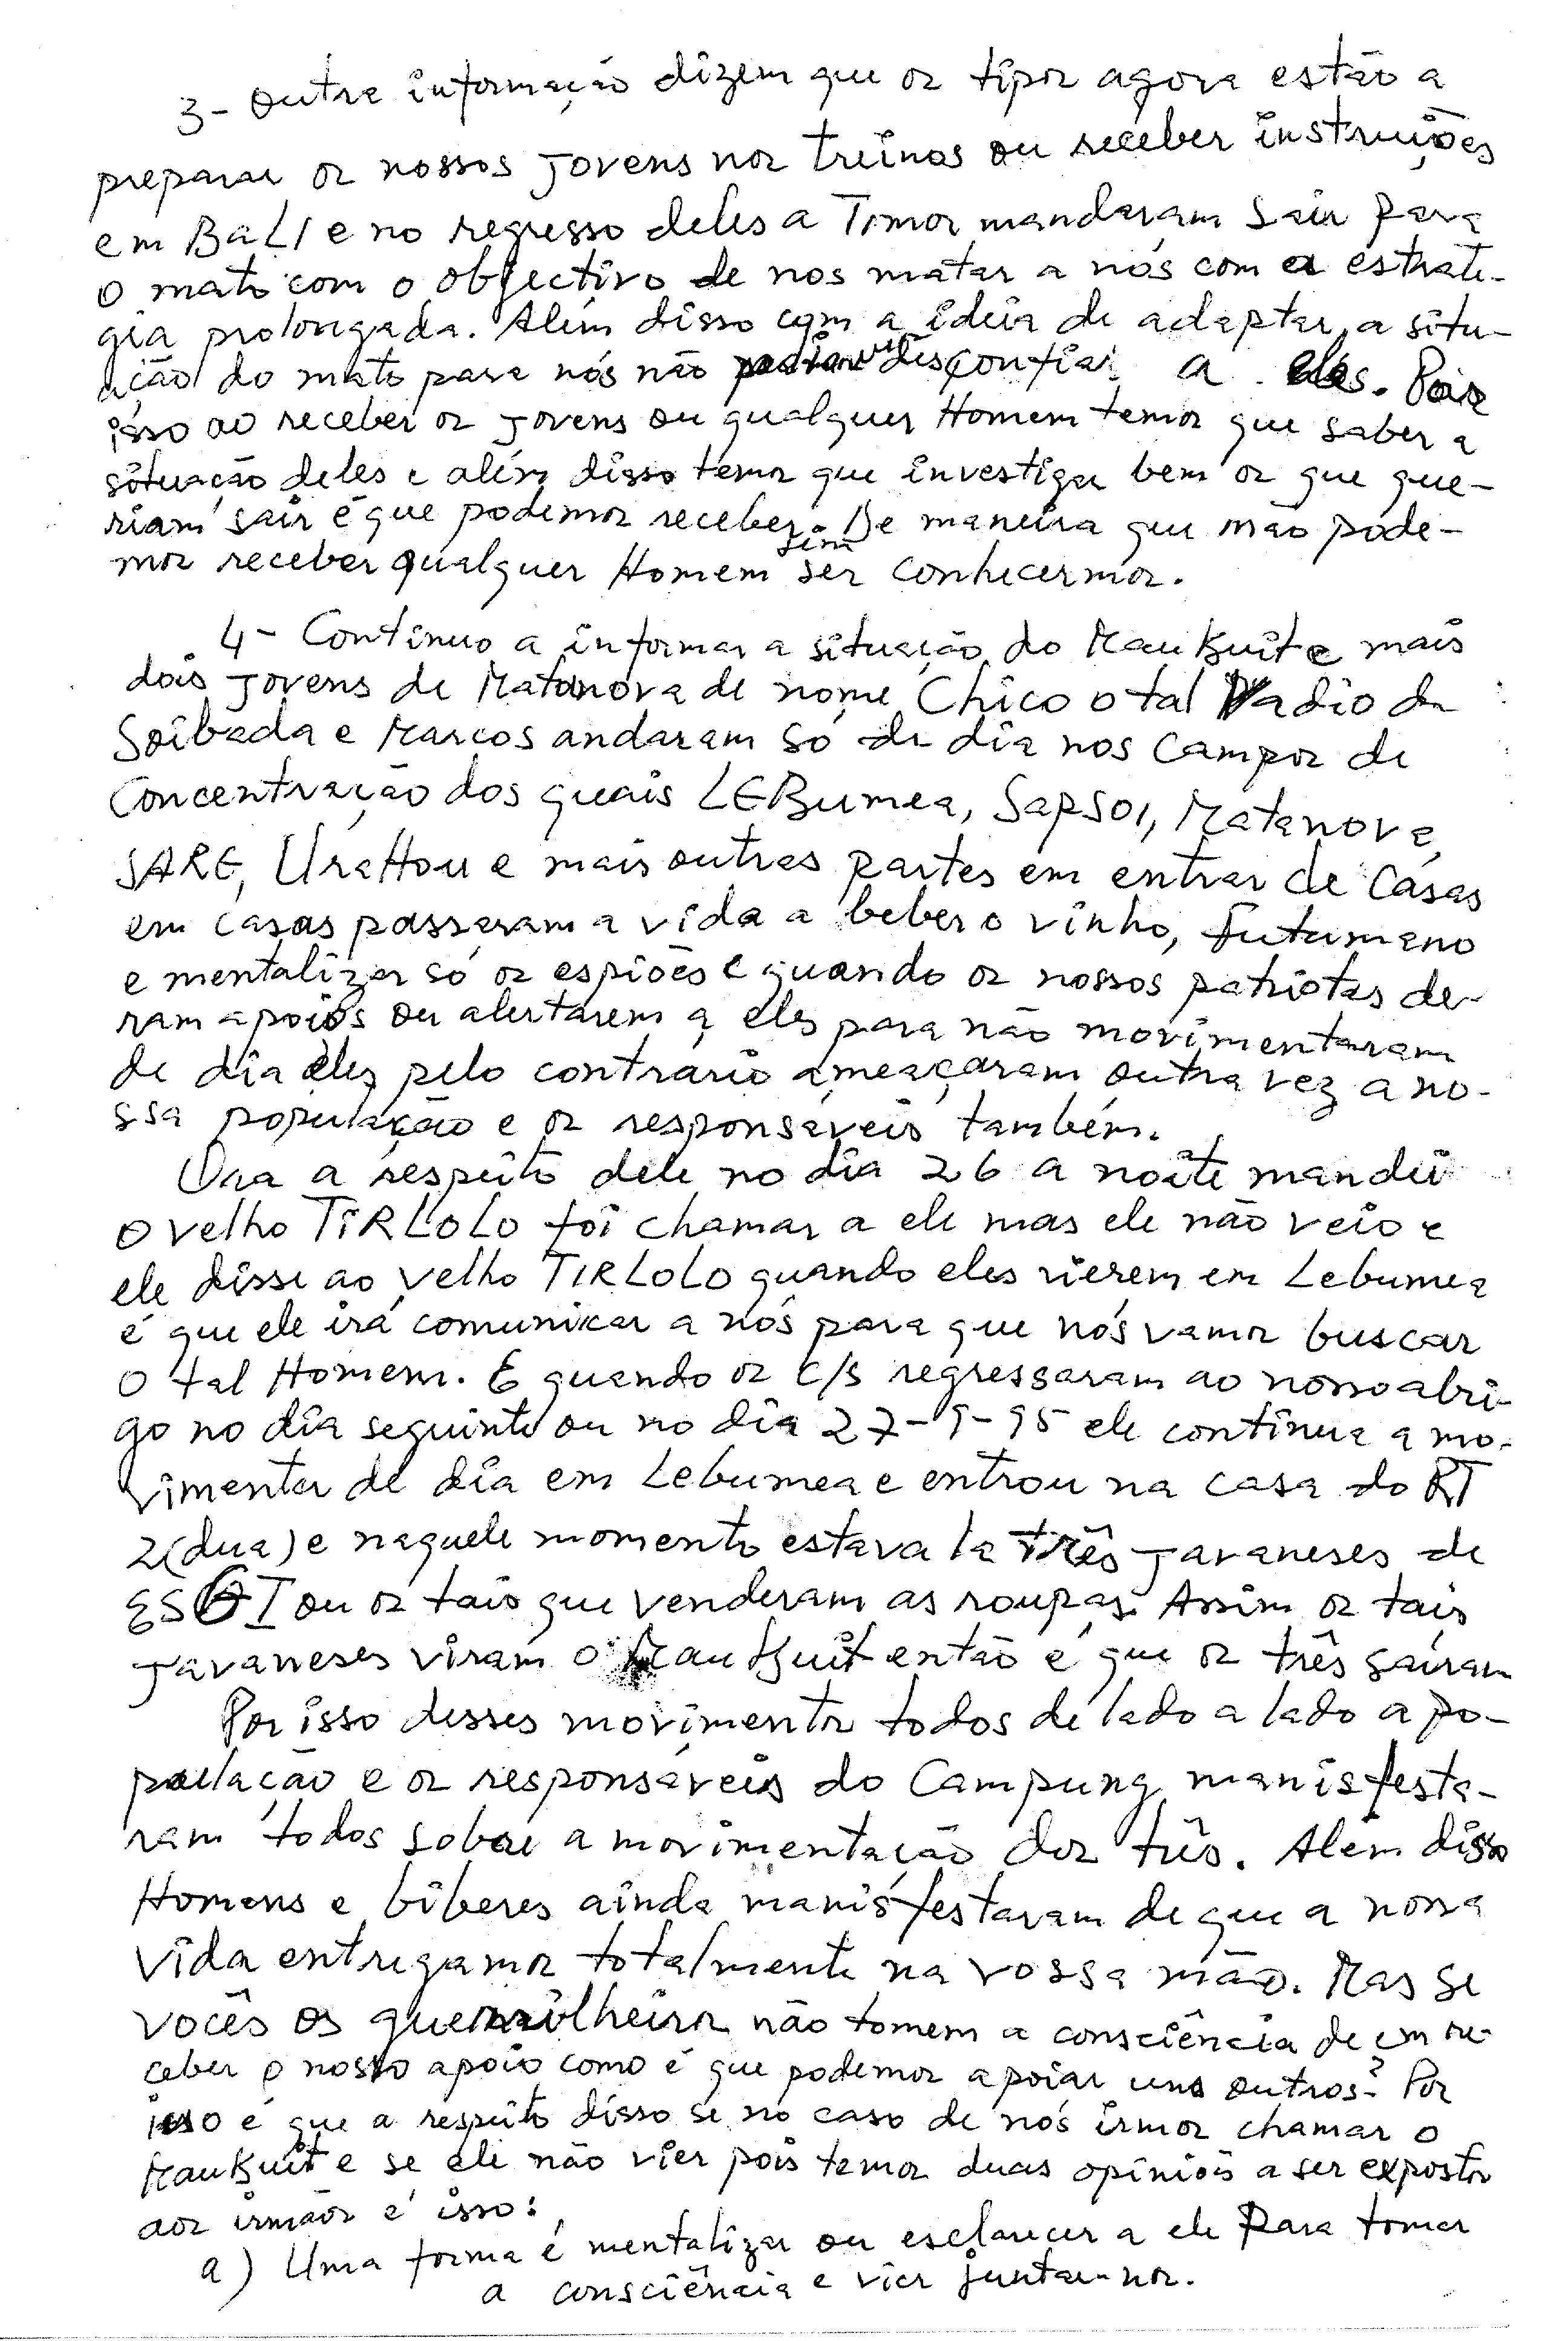 3- Outra informação dizem que os tipos agora estão a
preparar os nossos jovens nos treinos ou receber instruções
em BaLI e no regresso deles a Timor mandaram sair para
o mato com o objectivo de nos matar a nós com a estraté-
gia prolongada. Além disso com a ideia de adaptar a situ-
ação do mato para nós não desconfiar a eles. Por
isso ao receber os jovens ou qualquer Homem temos que saber a
situação deles e além disso temos que investigar bem os que que-
riam sair é que podemos receber. De maneira que não pode-
mos receber qualquer Homem sem ser conhecermos.
4- Continuo a informar a situação do MauKuit e mais
dois jovens de Matanova de nome Chico o tal Vadio de
Soibada e Marcos andaram só de dia nos Campos de
Concentração dos quais LEBumea, SapSOI, Matanova,
SARE, UraHou e mais outras partes em entrar de Casas
em casas passaram a vida a beber o vinho, futumano
e mentalizar só os espiões e quando os nossos patriotas de-
ram apoios ou alertarem a eles para não movimentaram
de dia eles pelo contrário ameaçaram outra vez a no-
ssa população e os responsáveis também.
Ora a respeito dele no dia 26 a noite mandei
o velho TiRLoLo foi chamar a ele mas ele não veio e
ele disse ao velho TIRLoLo quando eles vierem em Lebumea
é que ele irá comunicar a nós para que nós vamos buscar
o tal Homem. E quando os c/s regressaram ao nosso abri-
go no dia seguinte ou no dia 27-9-95 ele continua a mo-
vimentar de dia em Lebumea e entrou na casa do RT
2(dua) e naquele momento estava la três javaneses de
ou os tais que venderam as roupas. Assim os tais
javaneses viram o MauKuit então é que os três saíram
Por isso desses movimentos todos de lado a lado a po-
pulação e os responsáveis do Campung manisfesta-
ram todos sobre a movimentação dos três. Além disso
Homens e biberes ainda manisfestaram de que a nossa
vida entregamos totalmente na vossa mão. Mas se
vocês os guerrilheiros não tomem a consciência de em re-
ceber o nosso apoio como é que podemos apoiar uns outros? Por
isso é que a respeito disso se no caso de nós irmos chamar o
MauKuit e se ele não vier pois temos duas opiniões a ser expostos
aos irmãos é isso:
a) Uma forma é mentalizar ou esclarecer a ele Para tomar
a consciência e vier juntar-nos.